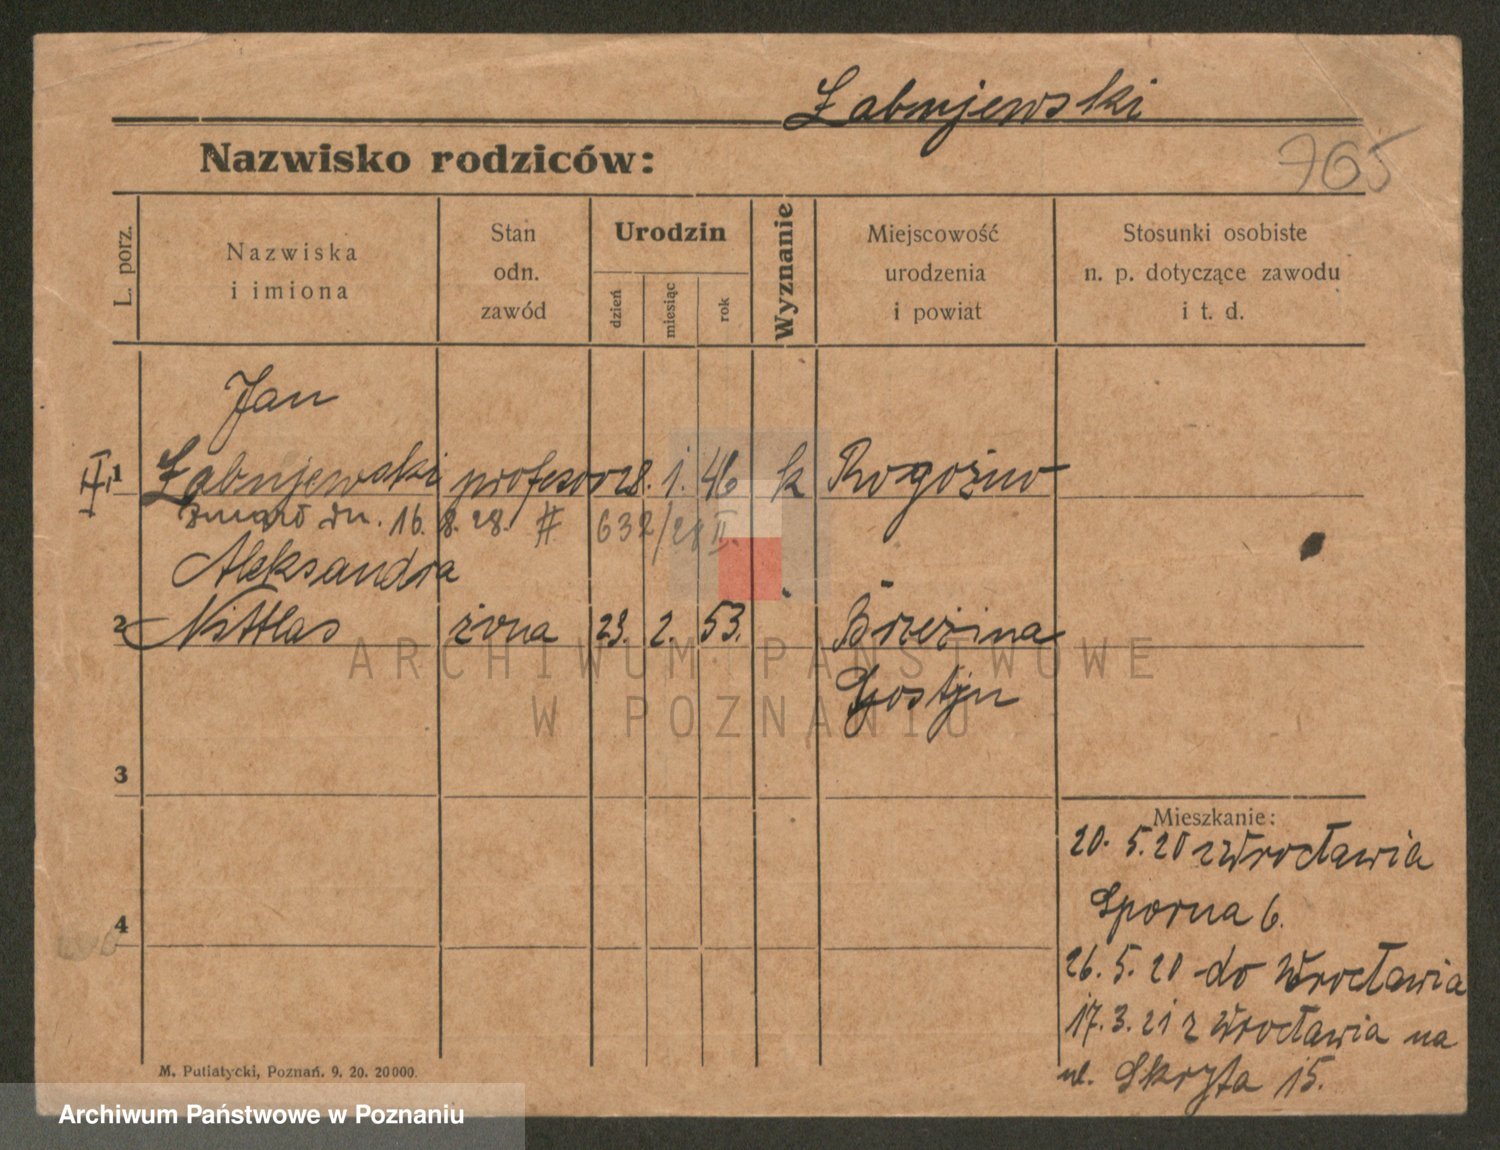 Łabujewski
765
Nazwisko rodziców:
L. porz.
Nazwiska
i imiona
Stan
odn.
zawód
Urodzin
dzień
miesiąc
rok
Wyznanie
Miejscowość
urodzenia
i powiat
Stosunki osobiste
n. p. dotyczące zawodu
i t. d.
Jan
1 Łabujewski profesor 28. 1. 46 k Rogoźno
zmarł dn. 16. 8. 28. # 632/28 II.
Aleksandra
2 Nittlas żona 23. 2. 53. Brzezina
Gostyn
3
4
Mieszkanie:
20. 5. 20 z Wrocławia
Sporna 6.
26. 5. 20 do Wrocławia
17. 3. 21 z Wrocławia na
ul. Skryta 15.
M. Putiatycki, Poznań. 9. 20. 20000.
ARCHIWUM PAŃSTWOWE
W POZNANIU
Archiwum Państwowe w Poznaniu